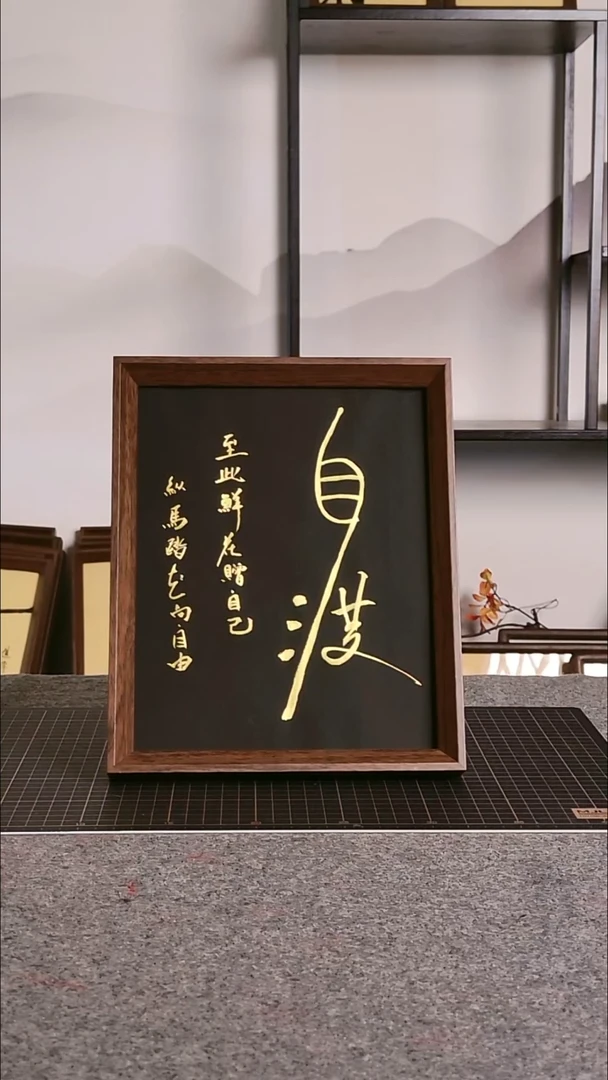 自渡
至此鮮花贈自己
纵馬踏花向自由